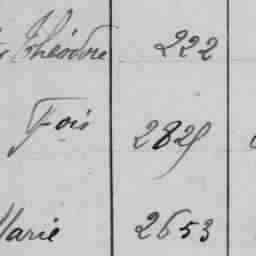 Théodore 222
Fois 2829
Marie 2653